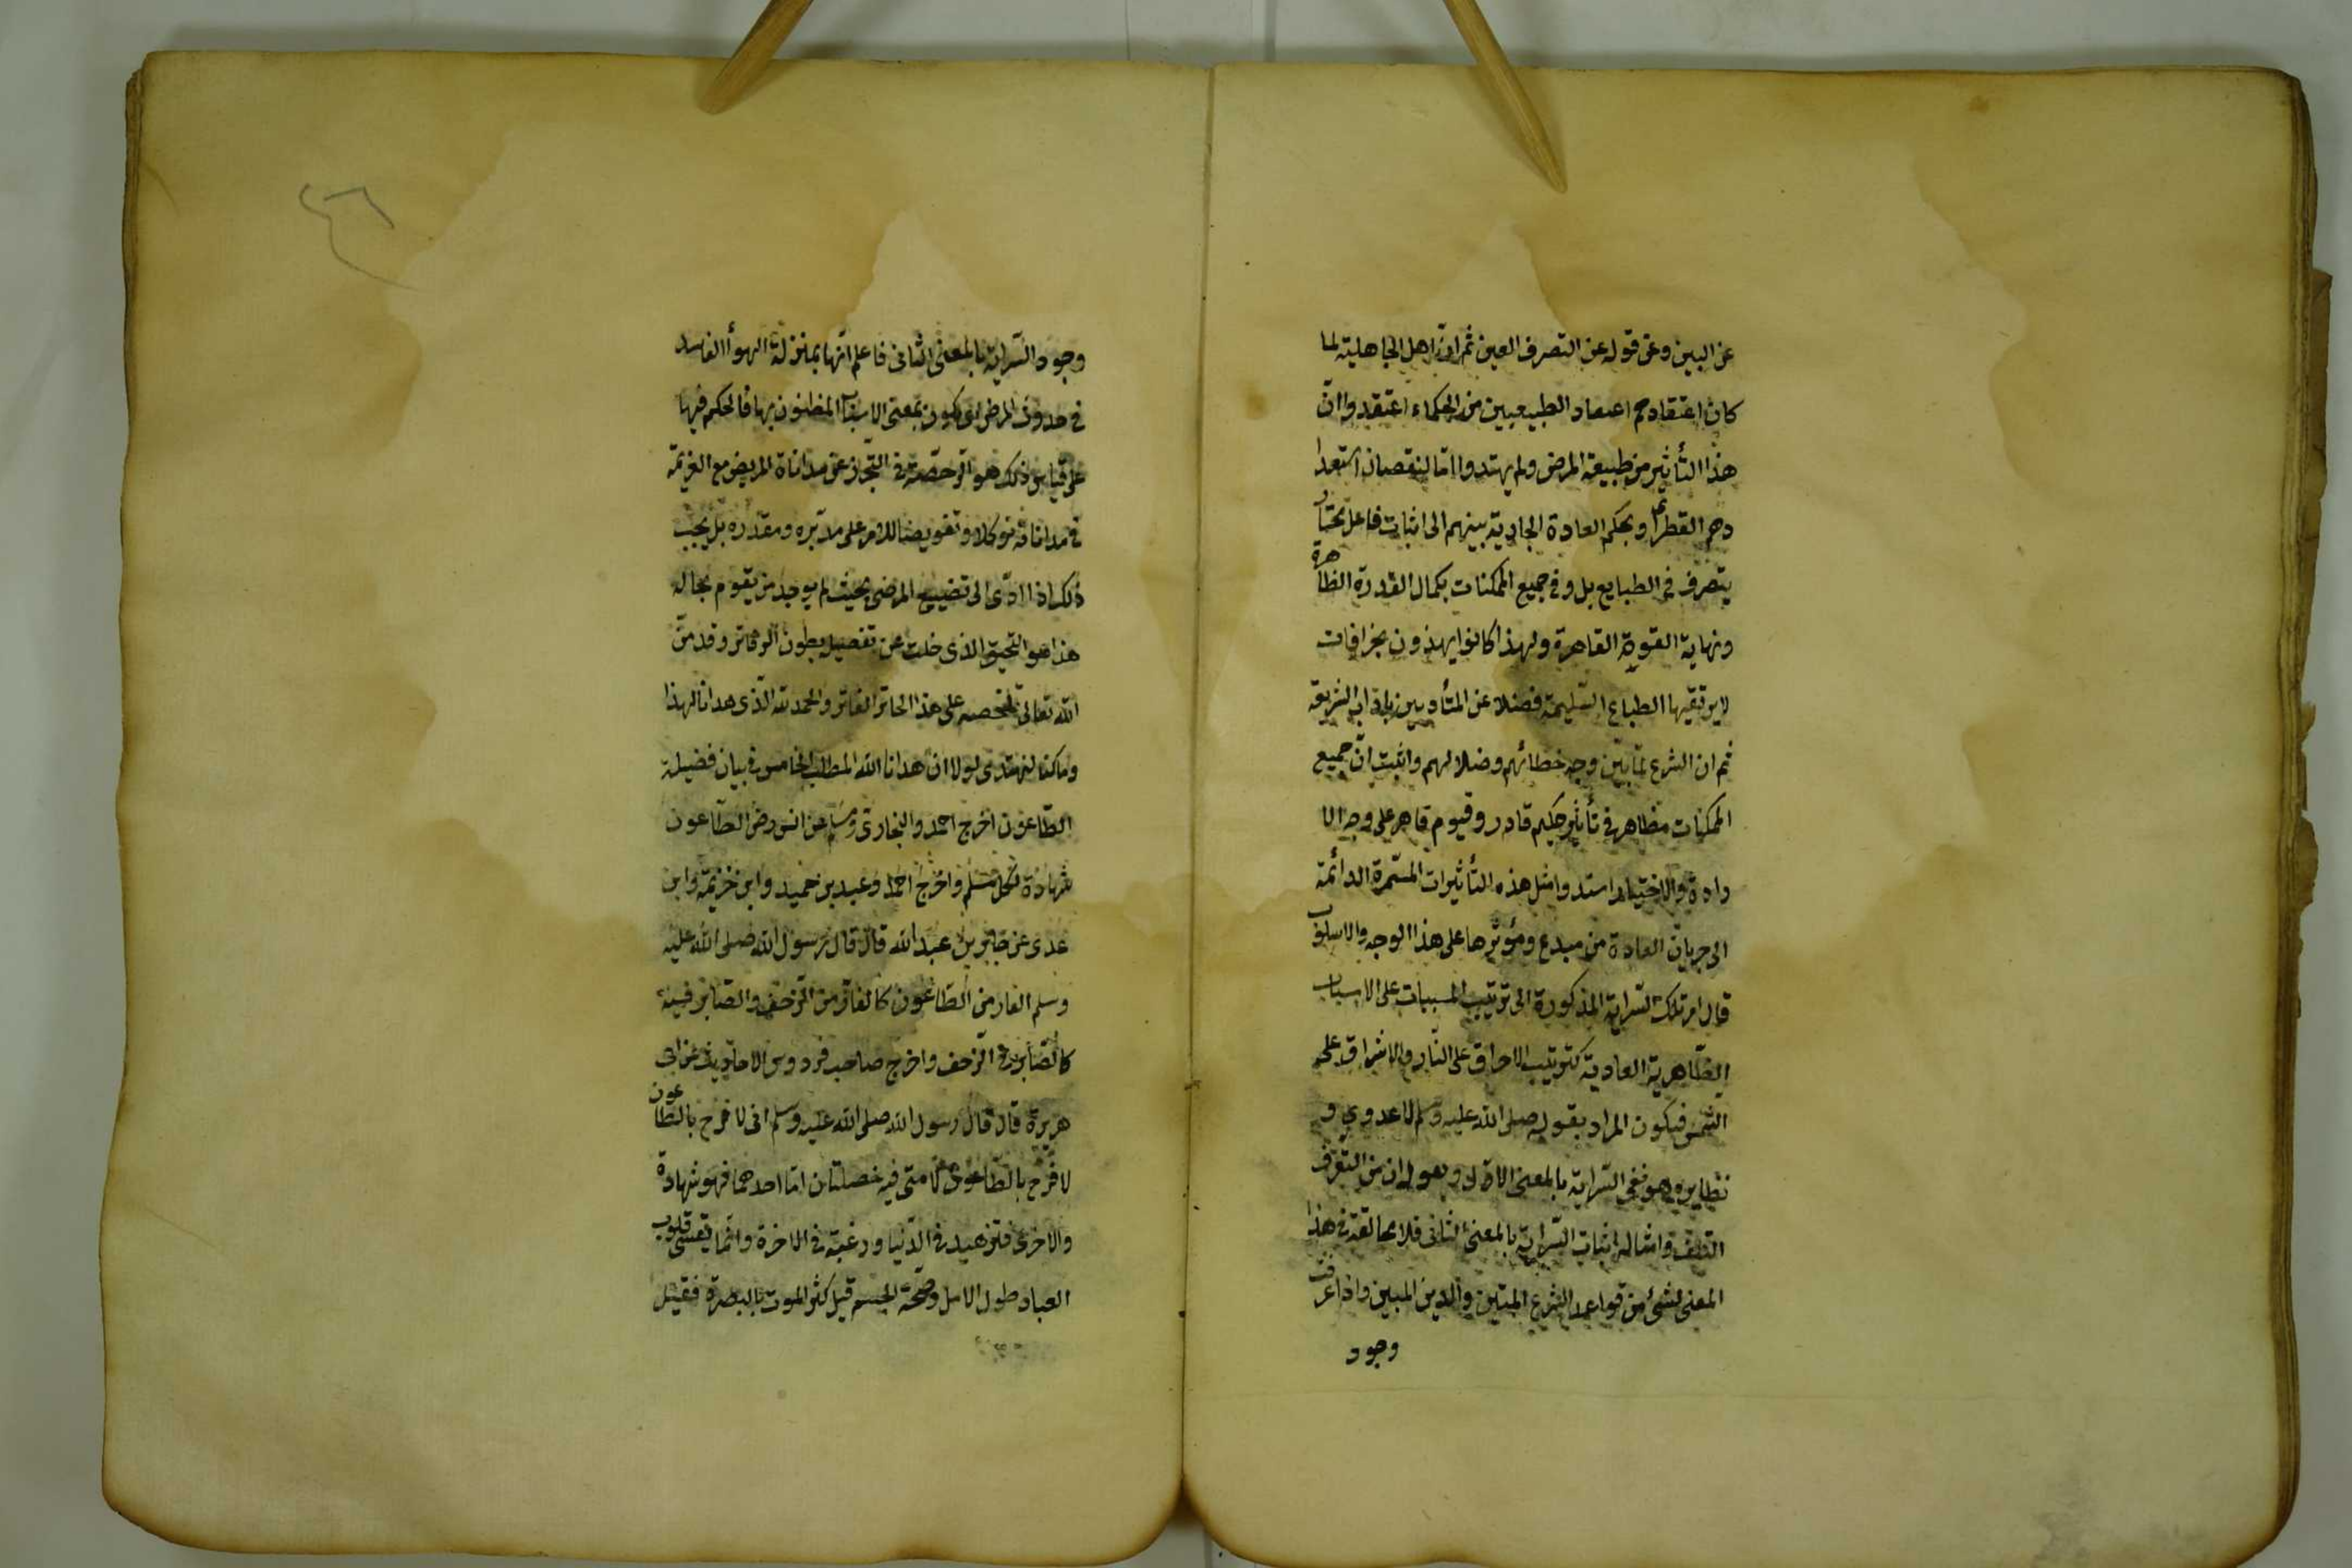 عن البين وعن قوله عن التصرف العين ثم ان اهل الجاهلية لما
كان اعتقادهم اعتقاد الطبيعيين من الحكماء اعتقدوا ان
هذا التأثير من طبيعة المرض ولم يهتدوا امّا لنقصان استعدا
دهم الفطري وبحكم العادة الجارية بينهم الى اثبات فاعل مختار
يتصرف في الطبايع بل وفي جميع الممكنات بكمال القدرة الظاهرة
ونهاية القوة القاهرة ولهذا كانوا يهذون بخرافات
لا يرتقيها الطباع السليمة فضلا عن المتأدبين باداب الشريعة
ثم ان الشرع لمّا بيّن وجه خطائهم وضلالهم واثبت انّ جميع
الممكنات مظاهر في تأثير حكيم قادر وقيوم قاهر على وجه الا
رادة والاختيار اسندوا مثل هذه التأثيرات المستمرة الدائمة
الى جريان العادة من مبدع ومؤثرها على هذا الوجه والاسلوب
قال امر تلك السراية المذكورة الى ترتيب المسببات على الاسباب
الظاهرية العادية كترتيب الاحراق على النار والاشراق على
الشمس فيكون المراد بقوله صلى الله عليه وسلم لا عدوى و
نظايره وهو نفي السراية بالمعنى الاول وبقوله ان من القرف
التلف وامثاله اثبات السراية بالمعنى الثاني فلا مخالفة في هذا
المعنى لشئ من قواعد الشرع المتين والدين المبين واذا عرفت
وجود
وجود السّراية بالمعنى الثاني فاعلم انّها بمنزلة الهوأ الفاسد
في حدوث المرض اي يكون بمعنى الاسباب المظنون بها فالحكم فيها
على قياس ذلك هو الرخصة في التجرز عن مداناة المريض مع العزيمة
في مداناته توكلا وتفويضا للامر على مدبّره ومقدره بل يجب
ذلك اذا ادّى الى تضييع المرضى بحيث لم يوجد من يقوم بحاله
هذا هو التحقيق الذي خلت عن تفصيله بطون الدفاتر وقد منّ
الله تعالى بتلخيصه على هذا الخاطر الفاتر والحمد لله الّذي هدانا لهذا
وما كنا لنهتدى لولا ان هدانا الله المطلب الخامس في بيان فضيلة
الطّاعون اخرج احمد والبخاري ومسلم عن انس رض الطّاعون
شهادة لكل مسلم واخرج احمد وعبد بن حميد وابن خزيمة وابن
عدى عن جابر بن عبد الله قال قال رسول الله صلى الله عليه
وسلم الفار من الطّاعون كالفارّ من الزحف والصّابر فيه
كالصّابر في الزحف واخرج صاحب فردوس الاحاديث عن ابى
هريرة قال قال رسول الله صلى الله عليه وسلم انى لا فرح بالطاعون
لا فرح بالطّاعون لامتى فيه خصلتان امّا احدهما فهو شهادة
والاخرى فتزهيد في الدّنيا ورغبة في الاخرة وانّما يقسى قلوب
العباد طول الامل وصحّة الجسم قيل كثر الموت بالبصرة فقيل